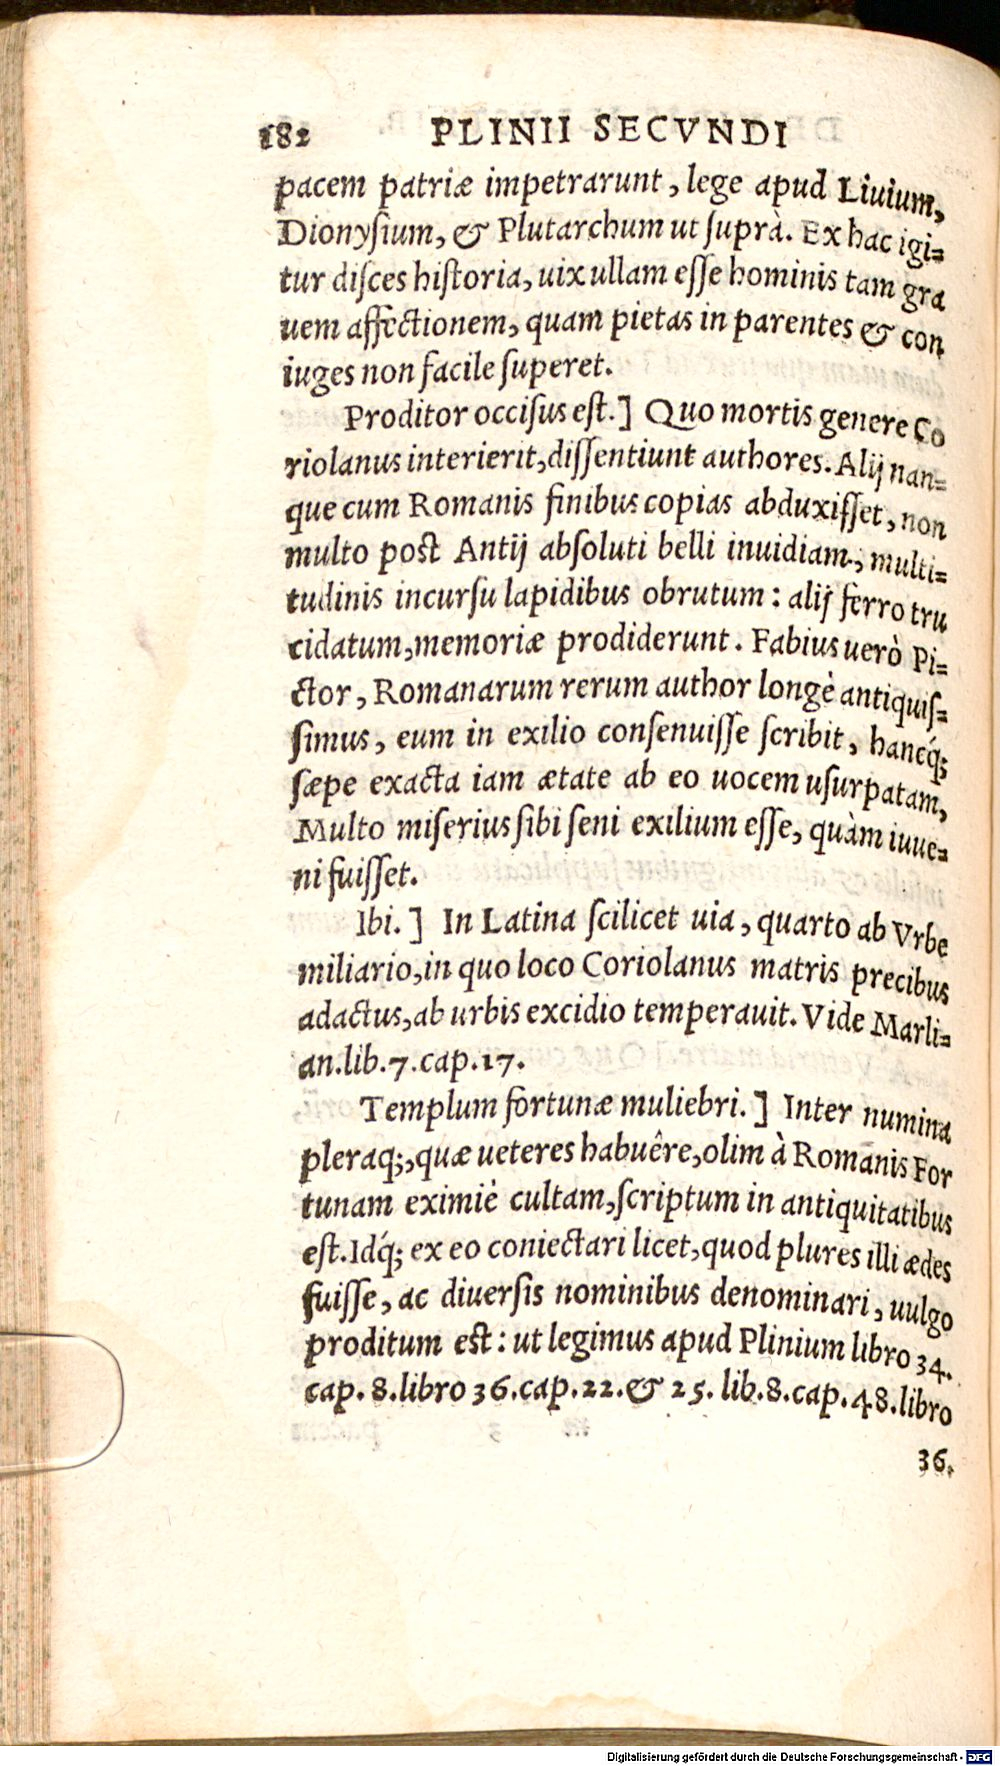 182 PLINII SECVNDI
pacem patriæ impetrarunt, lege apud Liuium,
Dionysium, & Plutarchum ut suprà. Ex hac igi=
tur disces historia, uix ullam esse hominis tam gra
uem affectionem, quam pietas in parentes & con
iuges non facile superet.
Proditor occisus est.] Quo mortis genere Co
riolanus interierit, dissentiunt authores. Alij nan=
que cum Romanis finibus copias abduxisset, non
multo post Antij absoluti belli inuidiam, multi=
tudinis incursu lapidibus obrutum: alij ferro tru
cidatum, memoriæ prodiderunt. Fabius uerò Pi=
ctor, Romanarum rerum author longè antiquis=
simus, eum in exilio consenuisse scribit, hancq́;
sæpe exacta iam ætate ab eo uocem usurpatam,
Multo miserius sibi seni exilium esse, quàm iuue=
ni fuisset.
Ibi.] In Latina scilicet uia, quarto ab Vrbe
miliario, in quo loco Coriolanus matris precibus
adactus, ab urbis excidio temperauit. Vide Marli=
an. lib. 7. cap. 17.
Templum fortunæ muliebri.] Inter numina
pleraq;, quæ ueteres habuêre, olim à Romanis For
tunam eximiè cultam, scriptum in antiquitatibus
est. Idq́; ex eo coniectari licet, quod plures illi ædes
fuisse, ac diuersis nominibus denominari, uulgo
proditum est: ut legimus apud Plinium libro 34.
cap. 8. libro 36. cap. 22. & 25. lib. 8. cap. 48. libro
36.
Digitalisierung gefördert durch die Deutsche Forschungsgemeinschaft - DFG